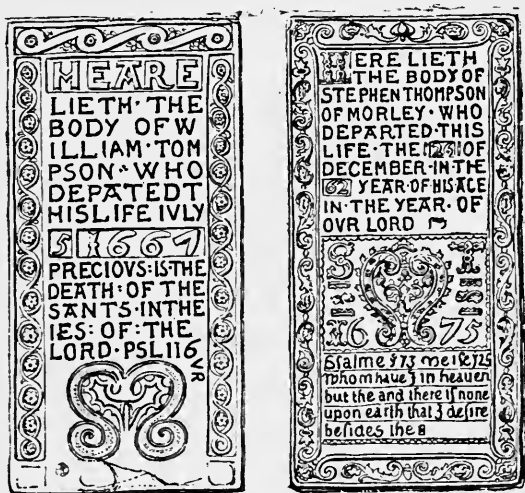 HEARE
LIETH · THE
BODY OF W
ILLIAM · TOM
PSON · WHO
DEPATEDT
HISLIFE IVLY
5 1667
PRECIOVS : IS · THE
DEATH : OF · THE
SANTS · INTHE
IES : OF : THE
LORD · PSL 116
VR
HERE LIETH
THE BODY OF
STEPHEN THOMPSON
OF MORLEY · WHO
DEPARTED · THIS
LIFE · THE OF
DECEMBER · IN · THE
62 YEAR · OF HIS AGE
IN · THE YEAR · OF
OVR LORD
S
1675
Psalme 73
whom have I in heauen
but the and there is none
upon earth that I desire
besides the